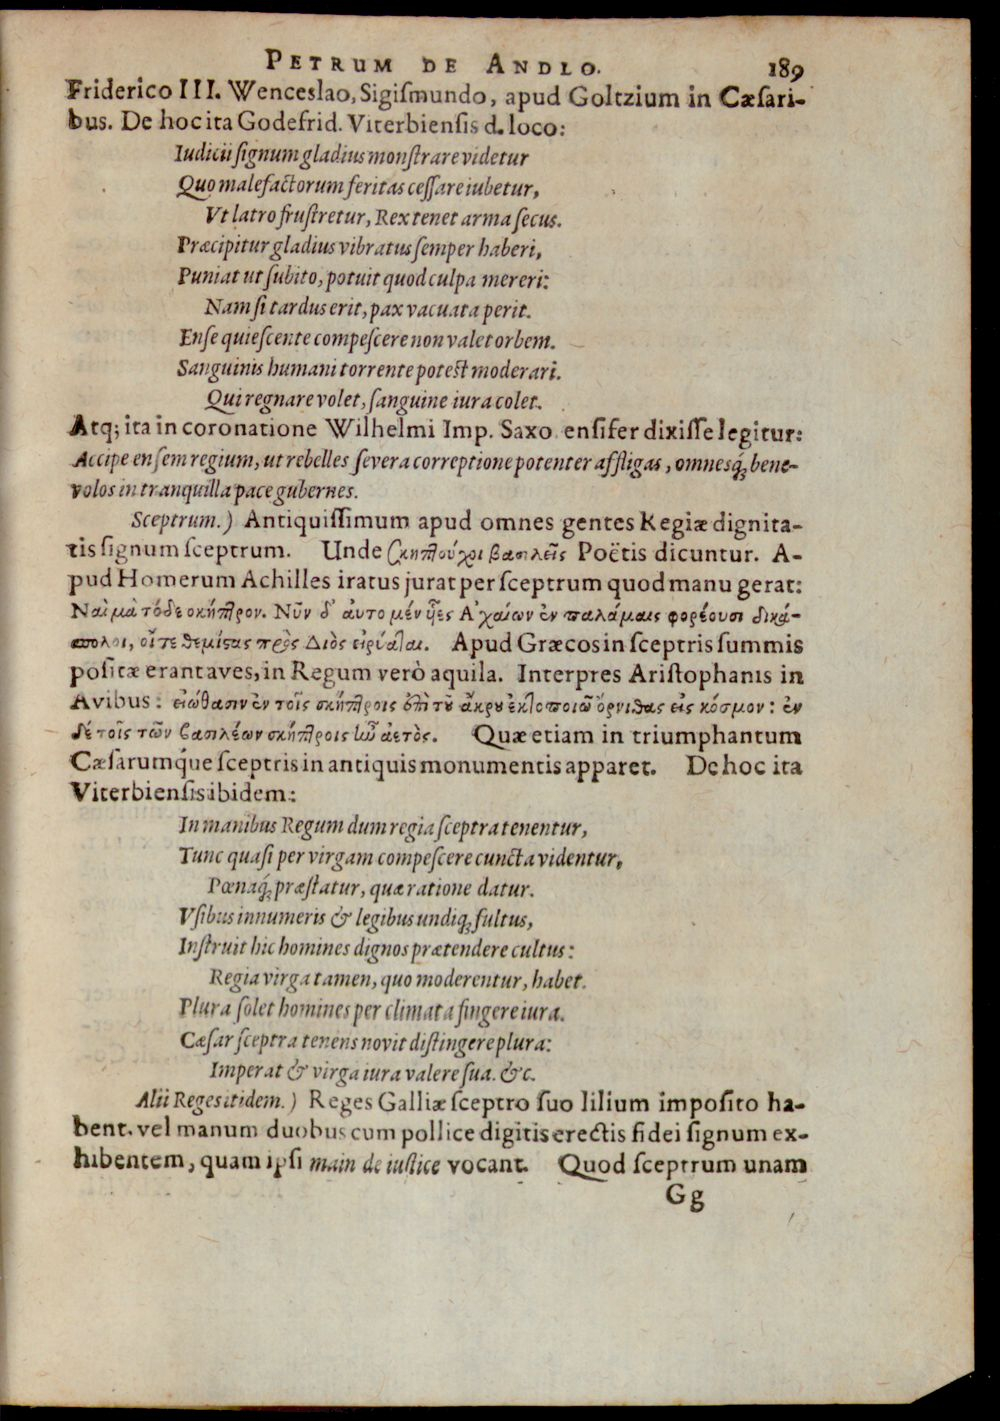 PETRUM DE ANDLO. 189
Friderico III. Wenceslao, Sigiſmundo, apud Goltzium in Cæſari-
bus. De hoc ita Godefrid. Viterbienſis d. loco:
Iudicii ſignum gladius monſtrare videtur
Quo malefactorum feritas ceſſare iubetur,
Vt latro fruſtretur, Rex tenet arma ſecus.
Præcipitur gladius vibratus ſemper haberi,
Puniat ut ſubito, potuit quod culpa mereri:
Nam ſi tardus erit, pax vacuata perit.
Enſe quieſcente compeſcere non valet orbem.
Sanguinis humani torrente poteſt moderari.
Qui regnare volet, ſanguine iura colet.
Atq; ita in coronatione Wilhelmi Imp. Saxo enſifer dixiſſe legitur:
Accipe enſem regium, ut rebelles ſevera correptione potenter affligas, omnesq; bene-
volos in tranquilla pace gubernes.
Sceptrum.) Antiquiſſimum apud omnes gentes Regiæ dignita-
tis ſignum ſceptrum. Unde σκηπτοῦχοι βασιλεῖς Poëtis dicuntur. A-
pud Homerum Achilles iratus jurat per ſceptrum quod manu gerat:
Ναὶ μὰ τόδε σκήπτρον. Νῦν δ' αὐτο μέν ἧες Ἀχαίων ἐν παλάμαις φορέουσι δικά-
σπολοι, οἵτε θεμίςας πρὸς Διὸς εἰρύαται. Apud Græcos in ſceptris ſummis
poſitæ erant aves, in Regum verò aquila. Interpres Ariſtophanis in
Avibus: εἰώθασιν ἐν τοῖς σκήπτροις ἐπὶ τοῦ ἄκρου ἐκτοποιῶ ὄρνιθας εἰς κόσμον: ἐν
δέ τοῖς τῶν βασιλέων σκήπτροις ἦν ἀετὸς. Quæ etiam in triumphantum
Cæſarumque ſceptris in antiquis monumentis apparet. De hoc ita
Viterbienſis ibidem:
In manibus Regum dum regia ſceptra tenentur,
Tunc quaſi per virgam compeſcere cuncta videntur,
Pœnaq; præſtatur, quæ ratione datur.
Vſibus innumeris & legibus undiq; fultus,
Inſtruit hic homines dignos prætendere cultus:
Regia virga tamen, quo moderentur, habet.
Plura ſolet homines per climata fingere iura.
Cæſar ſceptra tenens novit diſtingere plura:
Imperat & virga iura valere ſua. &c.
Alii Reges itidem.) Reges Galliæ ſceptro ſuo lilium impoſito ha-
bent. vel manum duobus cum pollice digitis erectis fidei ſignum ex-
hibentem, quam ipſi main de iuſtice vocant. Quod ſceptrum unam
Gg